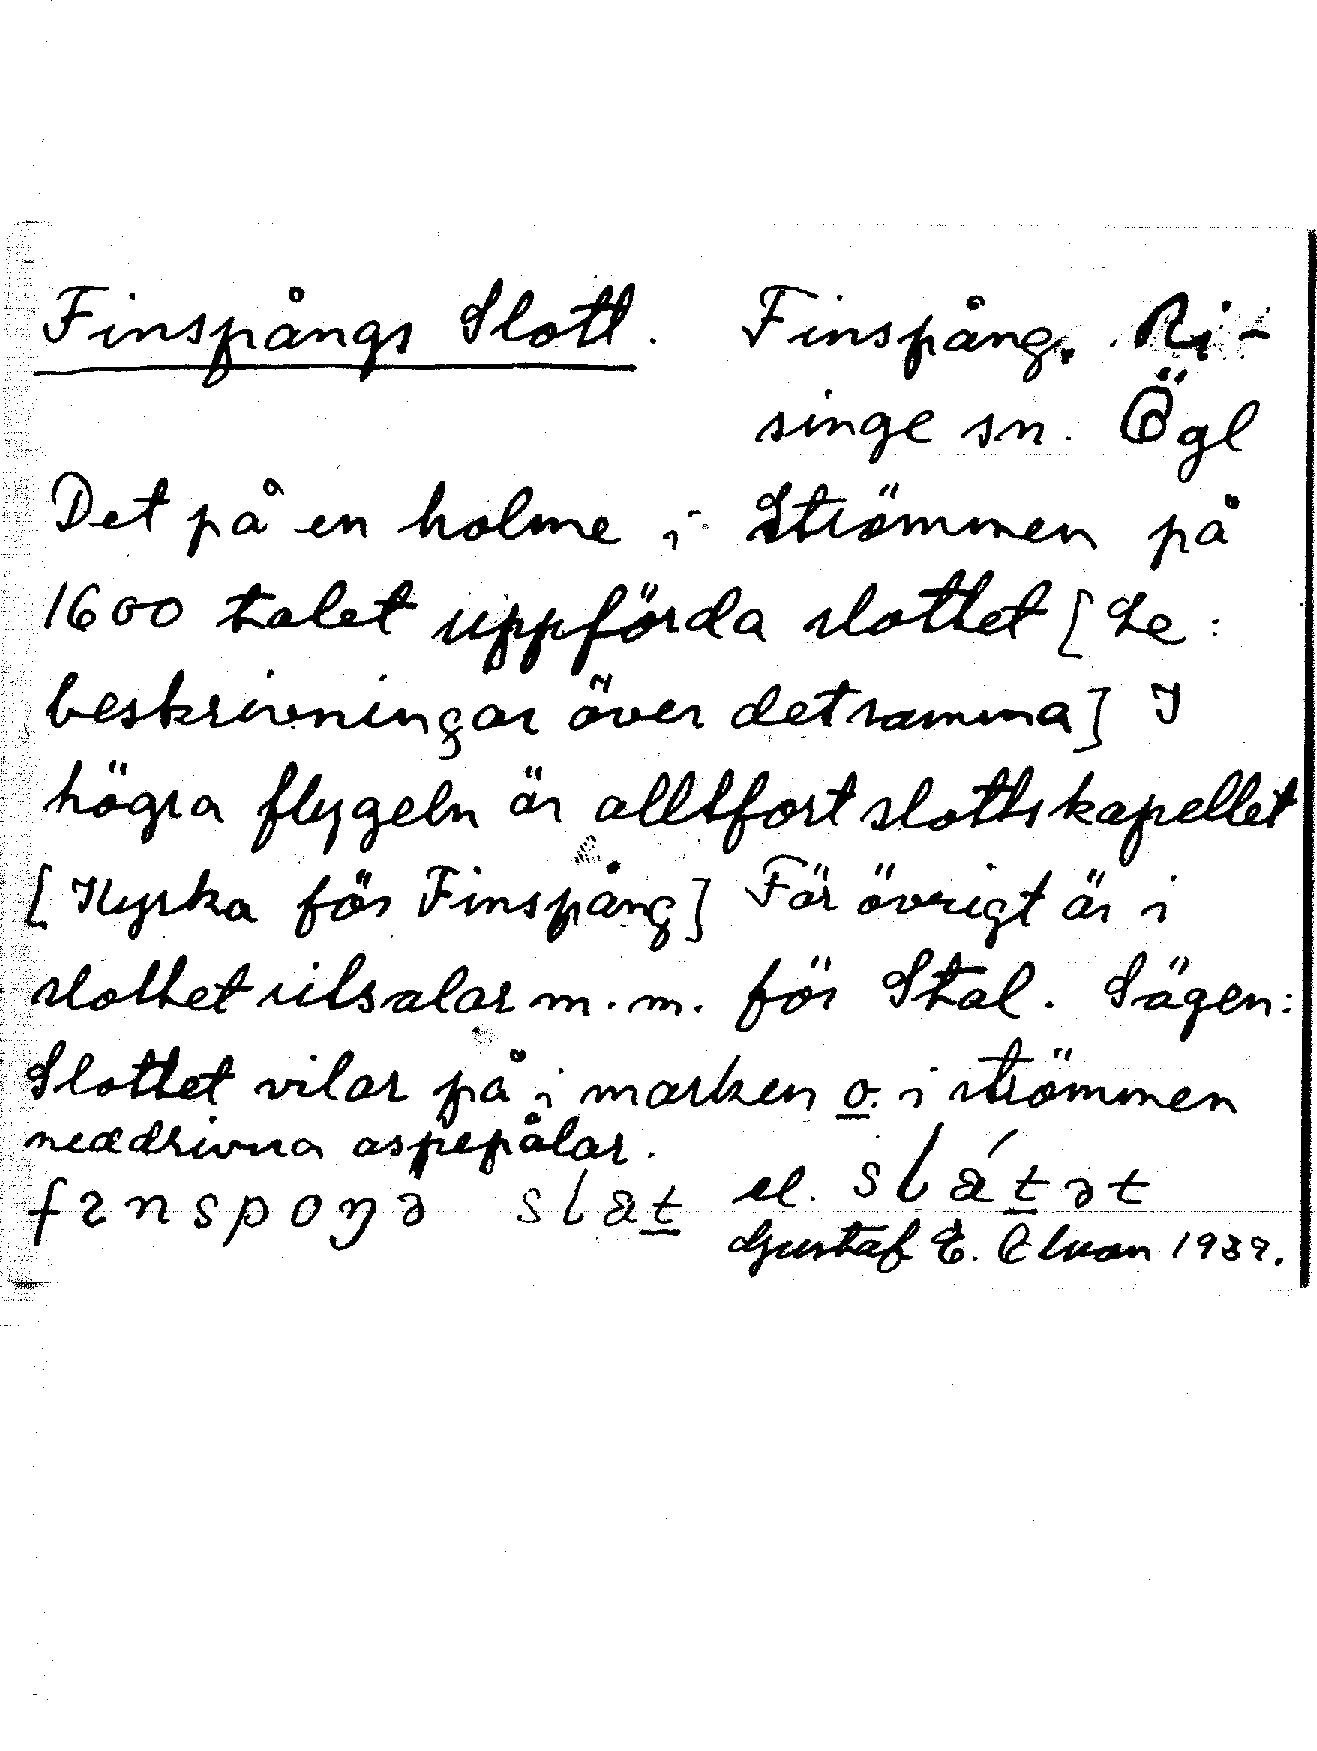 Finspångs Slott. Finspång. Ri-
singe sn. Ögl
Det på en holme i Strömmen på
1600 talet uppförda slottet [Se:
beskrivningar över detsamma] I
högra flygeln är alltfort slottskapellet
[Kyrka för Finspång] För övrigt är i
slottet utsalar m.m. för Stal. Sägen:
Slottet vilar på i marken o. i strömmen
neddrivna aspepålar.
el.
Gustaf E. 1939.